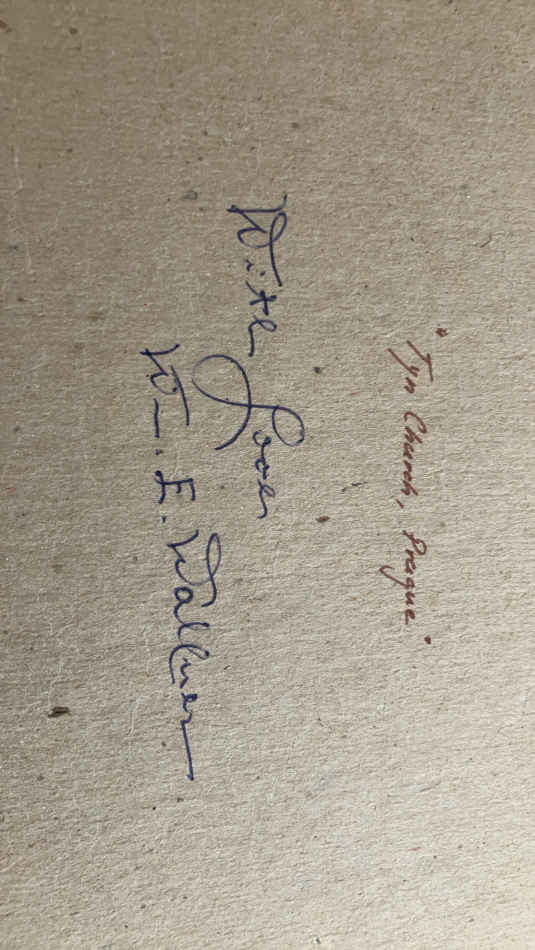 "Tyn Church, Prague"
With Love
Wm. E. Wallner